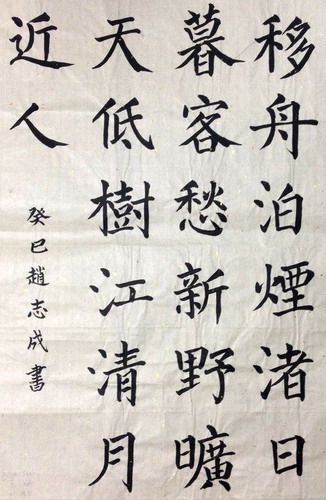 移舟泊煙渚日
暮客愁新野曠
天低樹江清月
近人
癸巳趙志成書